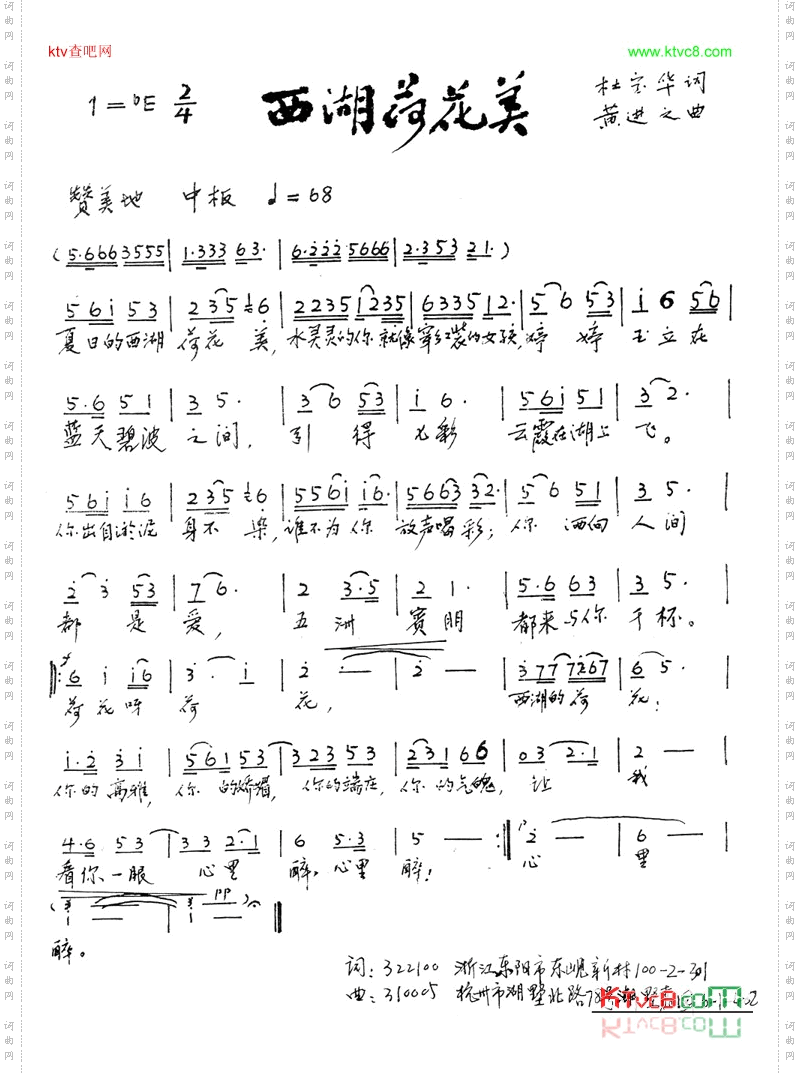 ktv查吧网 www.ktvc8.com
1=bE 2/4 西湖荷花美 杜宝华词
黄进之曲
赞美地 中板 ♩=68
(5·666 3555 | 1·333 63· | 6·222 5666 | 2·353 21·)
561 53 | 235 6· | 2235 1235 | 6335 12· | 5· 6 53 | 1 6 56 |
夏日的西湖 荷花 美, 水灵灵的你 就像穿红装的女孩, 婷 婷 玉立在
5·6 51 | 3 5· | 3 6 53 | 1 6· | 561 51 | 3 2· |
蓝天碧波 之间, 引 得 光彩 云霞在湖上 飞。
561 16 | 235 6· | 5561 16· | 5663 32· | 5 6 51 | 3 5· |
你出自淤泥 身不 染, 谁不为你 放声喝彩; 你 洒向 人间
2· 3 53 | 7 6· | 2 3·5 | 2 1· | 5·6 63 | 3 5· |
都 是 爱, 五 洲 宾朋 都来与你 干杯。
6 1 16 | 3· 1 | 2 — | 2 — | 377 7267 | 6 5· |
荷花呀 荷 花, 西湖的荷 花;
1·2 31 | 561 53 | 323 53 | 231 66 | 03 2·1 | 2 — |
你的高雅, 你 的娇媚, 你的端庄, 你的气魄, 让 我
4·6 53 | 33 2·1 | 6 5·3 | 5 — :‖ 2 — | 6 — |
看你一眼 心里 醉, 心里 醉! 心 里
pp
醉。
词: 322100 浙江东阳市东岘新村100-2-301
曲: 310005 杭州市湖墅北路
KTVC8.COM
词曲网